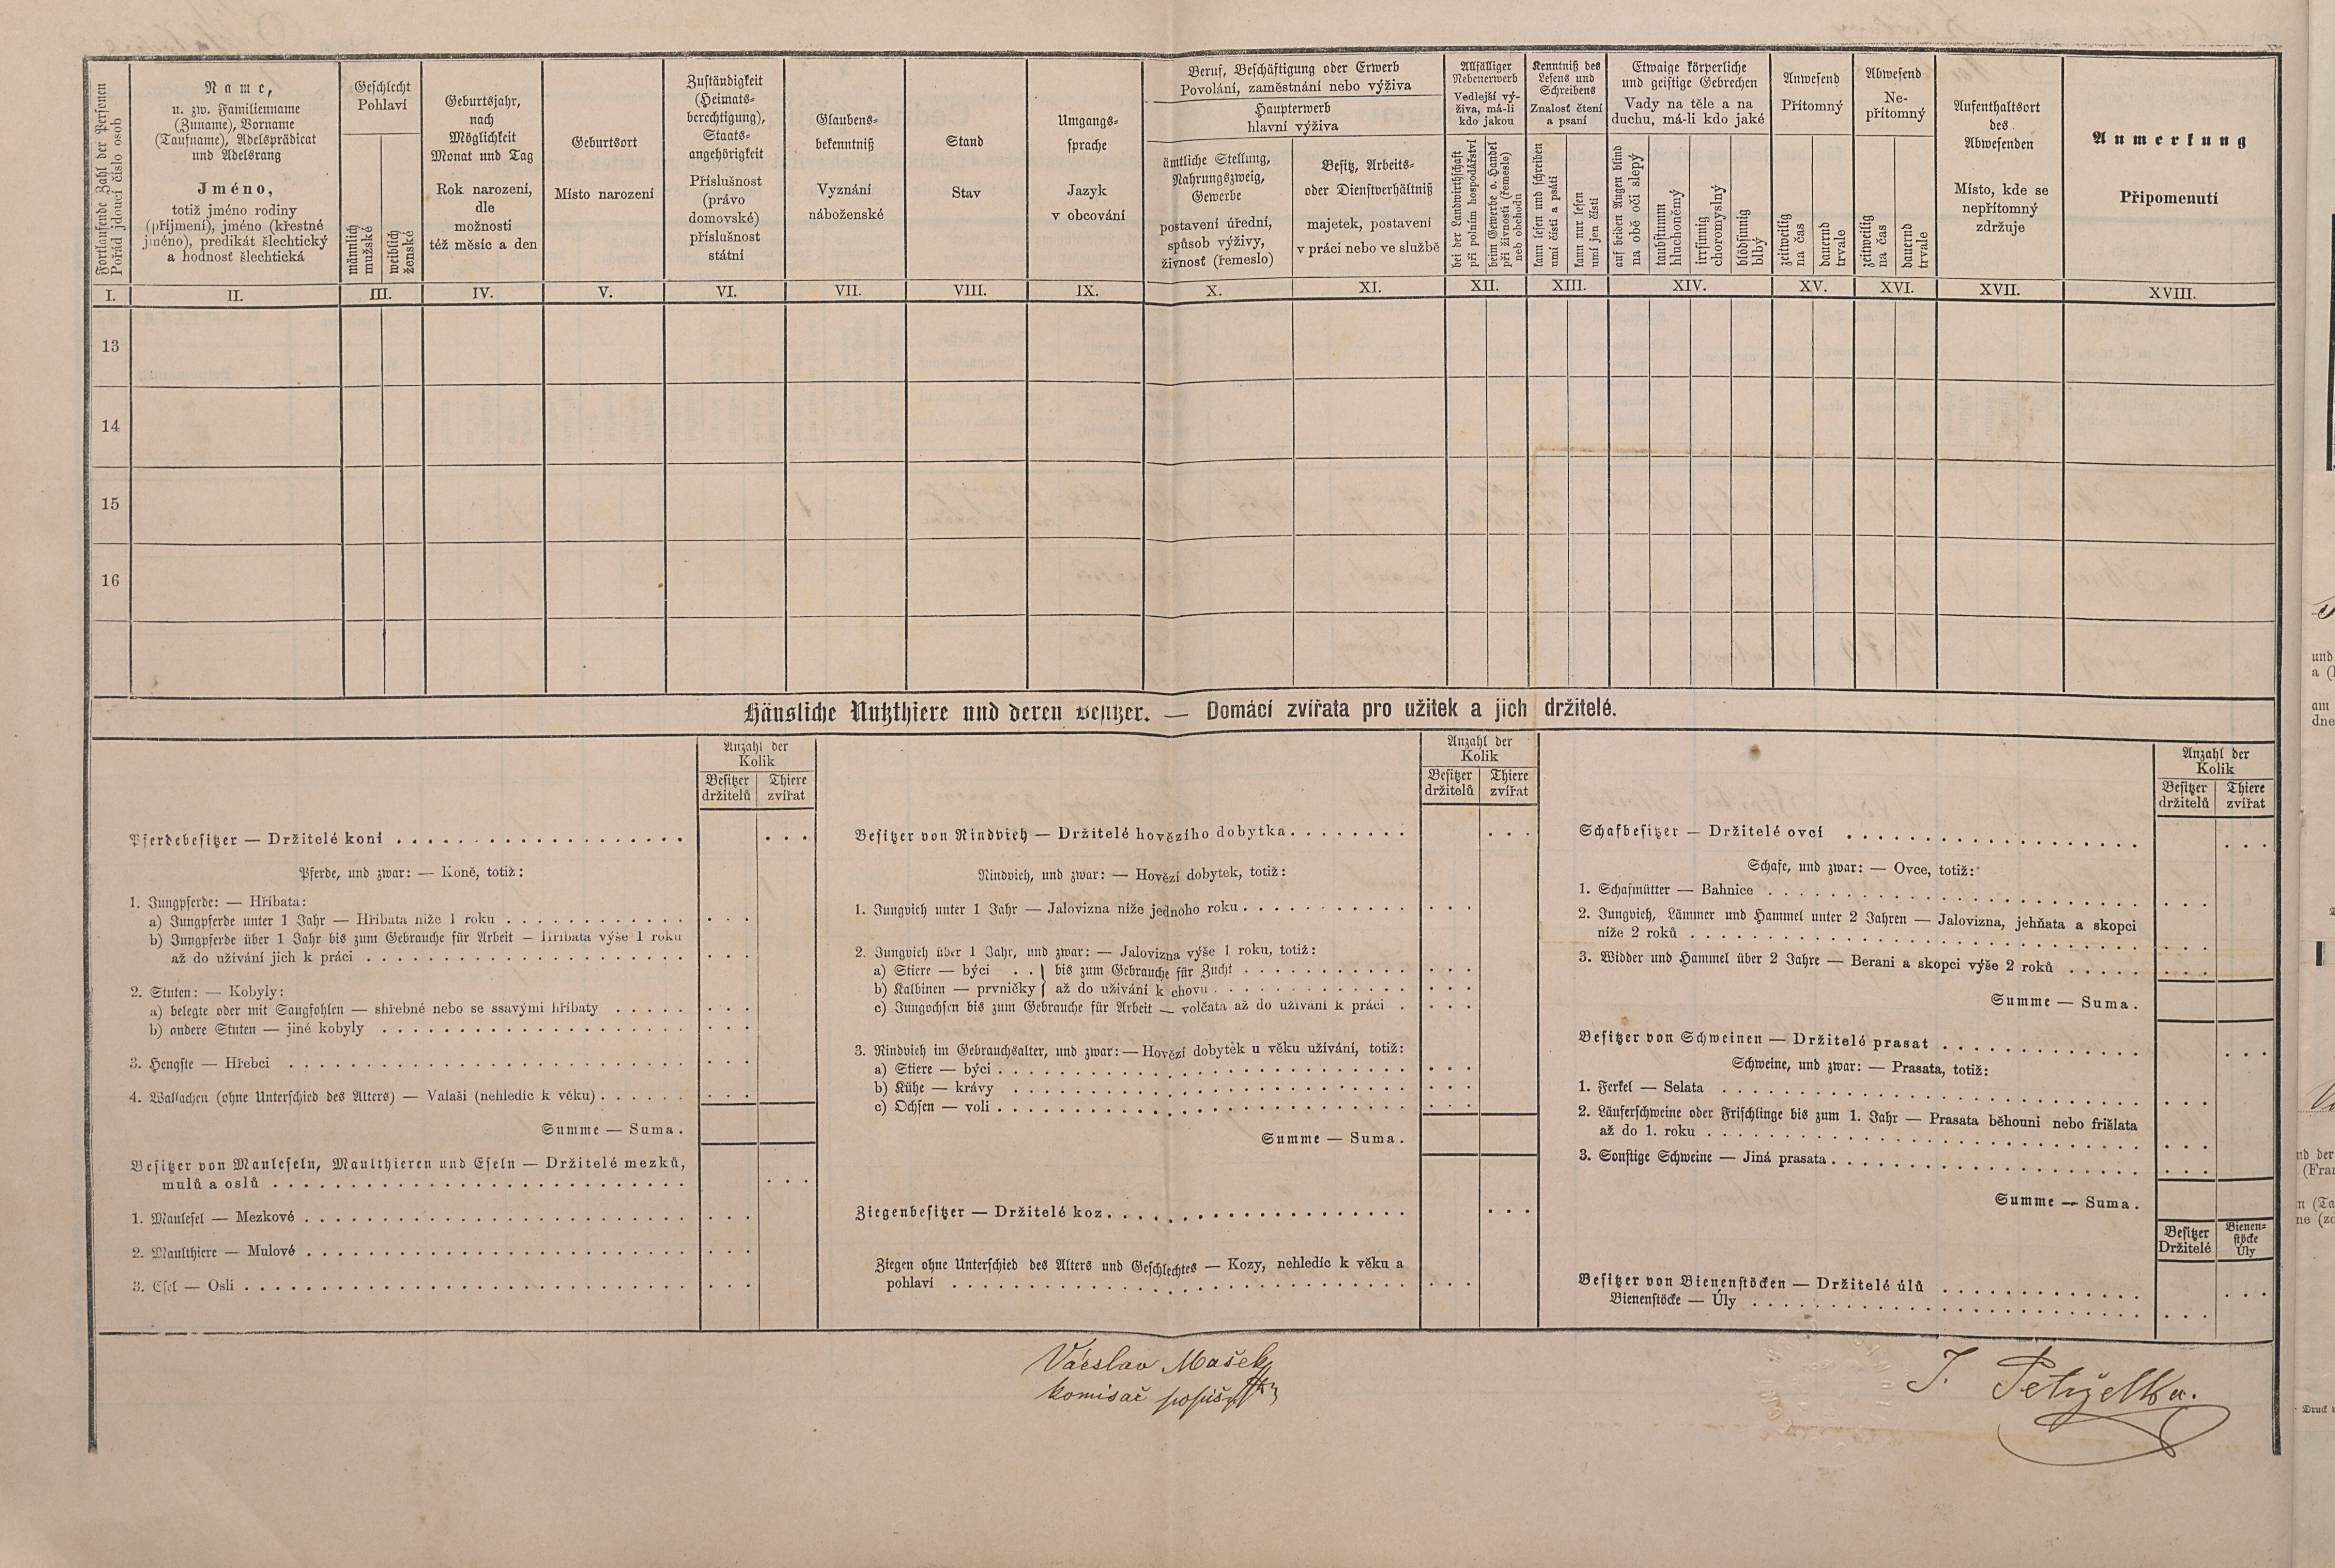 Fortlaufende Zahl der Personen
Pořad jdoucí číslo osob
Name,
u. zw. Familienname
(Zuname), Vorname
(Taufname), Adelsprädicat
und Adelsrang
Jméno,
totiž jméno rodiny
(příjmení), jméno (křestné
jméno), predikát šlechtický
a hodnost šlechtická
Geschlecht
Pohlaví
männlich
mužské
weiblich
ženské
Geburtsjahr,
nach
Möglichkeit
Monat und Tag
Rok narození,
dle
možnosti
též měsíc a den
Geburtsort
Místo narození
Zuständigkeit
(Heimats-
berechtigung),
Staats-
angehörigkeit
Příslušnost
(právo
domovské)
příslušnost
státní
Glaubens-
bekenntniß
Vyznání
náboženské
Stand
Stav
Umgangs-
sprache
Jazyk
v obcování
Beruf, Beschäftigung oder Erwerb
Povolání, zaměstnání nebo výživa
Haupterwerb
hlavní výživa
ämtliche Stellung,
Nahrungszweig,
Gewerbe
postavení úřední,
spůsob výživy,
živnosť (řemeslo)
Besitz, Arbeits-
oder Dienstverhältniß
majetek, postavení
v práci nebo ve službě
Allfälliger
Nebenerwerb
Vedlejší vý-
živa, má-li
kdo jakou
bei der Landwirthschaft
při polním hospodářství
beim Gewerbe o. Handel
při živnosti (řemesle)
neb obchodu
Kenntniß des
Lesens und
Schreibens
Znalosť čtení
a psaní
kann lesen und schreiben
umí čísti a psáti
kann nur lesen
umí jen čísti
Etwaige körperliche
und geistige Gebrechen
Vady na těle a na
duchu, má-li kdo jaké
auf beiden Augen blind
na obě oči slepý
taubstumm
hluchoněmý
irrsinnig
choromyslný
blödsinnig
blbý
Anwesend
Přítomný
zeitweilig
na čas
dauernd
trvale
Abwesend
Ne-
přítomný
zeitweilig
na čas
dauernd
trvale
Aufenthaltsort
des
Abwesenden
Místo, kde se
nepřítomný
zdržuje
Anmerkung
Připomenutí
I. II. III. IV. V. VI. VII. VIII. IX. X. XI. XII. XIII. XIV. XV. XVI. XVII. XVIII.
13
14
15
16
Häusliche Nutzthiere und deren Besitzer. — Domácí zvířata pro užitek a jich držitelé.
Anzahl der
Kolik
Besitzer
držitelů
Thiere
zvířat
Pferdebesitzer — Držitelé koní
Pferde, und zwar: — Koně, totiž:
1. Jungpferde: — Hříbata:
a) Jungpferde unter 1 Jahr — Hříbata níže 1 roku
b) Jungpferde über 1 Jahr bis zum Gebrauche für Arbeit — Hříbata výše 1 roku
až do užívání jich k práci
2. Stuten: — Kobyly:
a) belegte oder mit Saugfohlen — shřebné nebo se ssavými hříbaty
b) andere Stuten — jiné kobyly
3. Hengste — Hřebci
4. Wallachen (ohne Unterschied des Alters) — Valaši (nehledíc k věku)
Summe — Suma.
Besitzer von Mauleseln, Maulthieren und Eseln — Držitelé mezků,
mulů a oslů
1. Maulesel — Mezkové
2. Maulthiere — Mulové
3. Esel — Osli
Anzahl der
Kolik
Besitzer
držitelů
Thiere
zvířat
Besitzer von Rindvieh — Držitelé hovězího dobytka
Rindvieh, und zwar: — Hovězí dobytek, totiž:
1. Jungvieh unter 1 Jahr — Jalovizna níže jednoho roku
2. Jungvieh über 1 Jahr, und zwar: — Jalovizna výše 1 roku, totiž:
a) Stiere — býci . . } bis zum Gebrauche für Zucht
b) Kalbinen — prvničky } až do užívání k chovu
c) Jungochsen bis zum Gebrauche für Arbeit — volčata až do užívání k práci
3. Rindvieh im Gebrauchsalter, und zwar: — Hovězí dobytek u věku užívání, totiž:
a) Stiere — býci
b) Kühe — krávy
c) Ochsen — voli
Summe — Suma.
Ziegenbesitzer — Držitelé koz
Ziegen ohne Unterschied des Alters und Geschlechtes — Kozy, nehledíc k věku a
pohlaví
Anzahl der
Kolik
Besitzer
držitelů
Thiere
zvířat
Schafbesitzer — Držitelé ovcí
Schafe, und zwar: — Ovce, totiž:
1. Schafmütter — Bahnice
2. Jungvieh, Lämmer und Hammel unter 2 Jahren — Jalovizna, jehňata a skopci
níže 2 roků
3. Widder und Hammel über 2 Jahre — Berani a skopci výše 2 roků
Summe — Suma.
Besitzer von Schweinen — Držitelé prasat
Schweine, und zwar: — Prasata, totiž:
1. Ferkel — Selata
2. Läuferschweine oder Frischlinge bis zum 1. Jahr — Prasata běhouni nebo frišlata
až do 1. roku
3. Sonstige Schweine — Jiná prasata
Summe — Suma.
Besitzer
Držitelé
Bienen-
stöcke
Úly
Besitzer von Bienenstöcken — Držitelé úlů
Bienenstöcke — Úly
Václav Mašek
komisař
J. Petrželka.